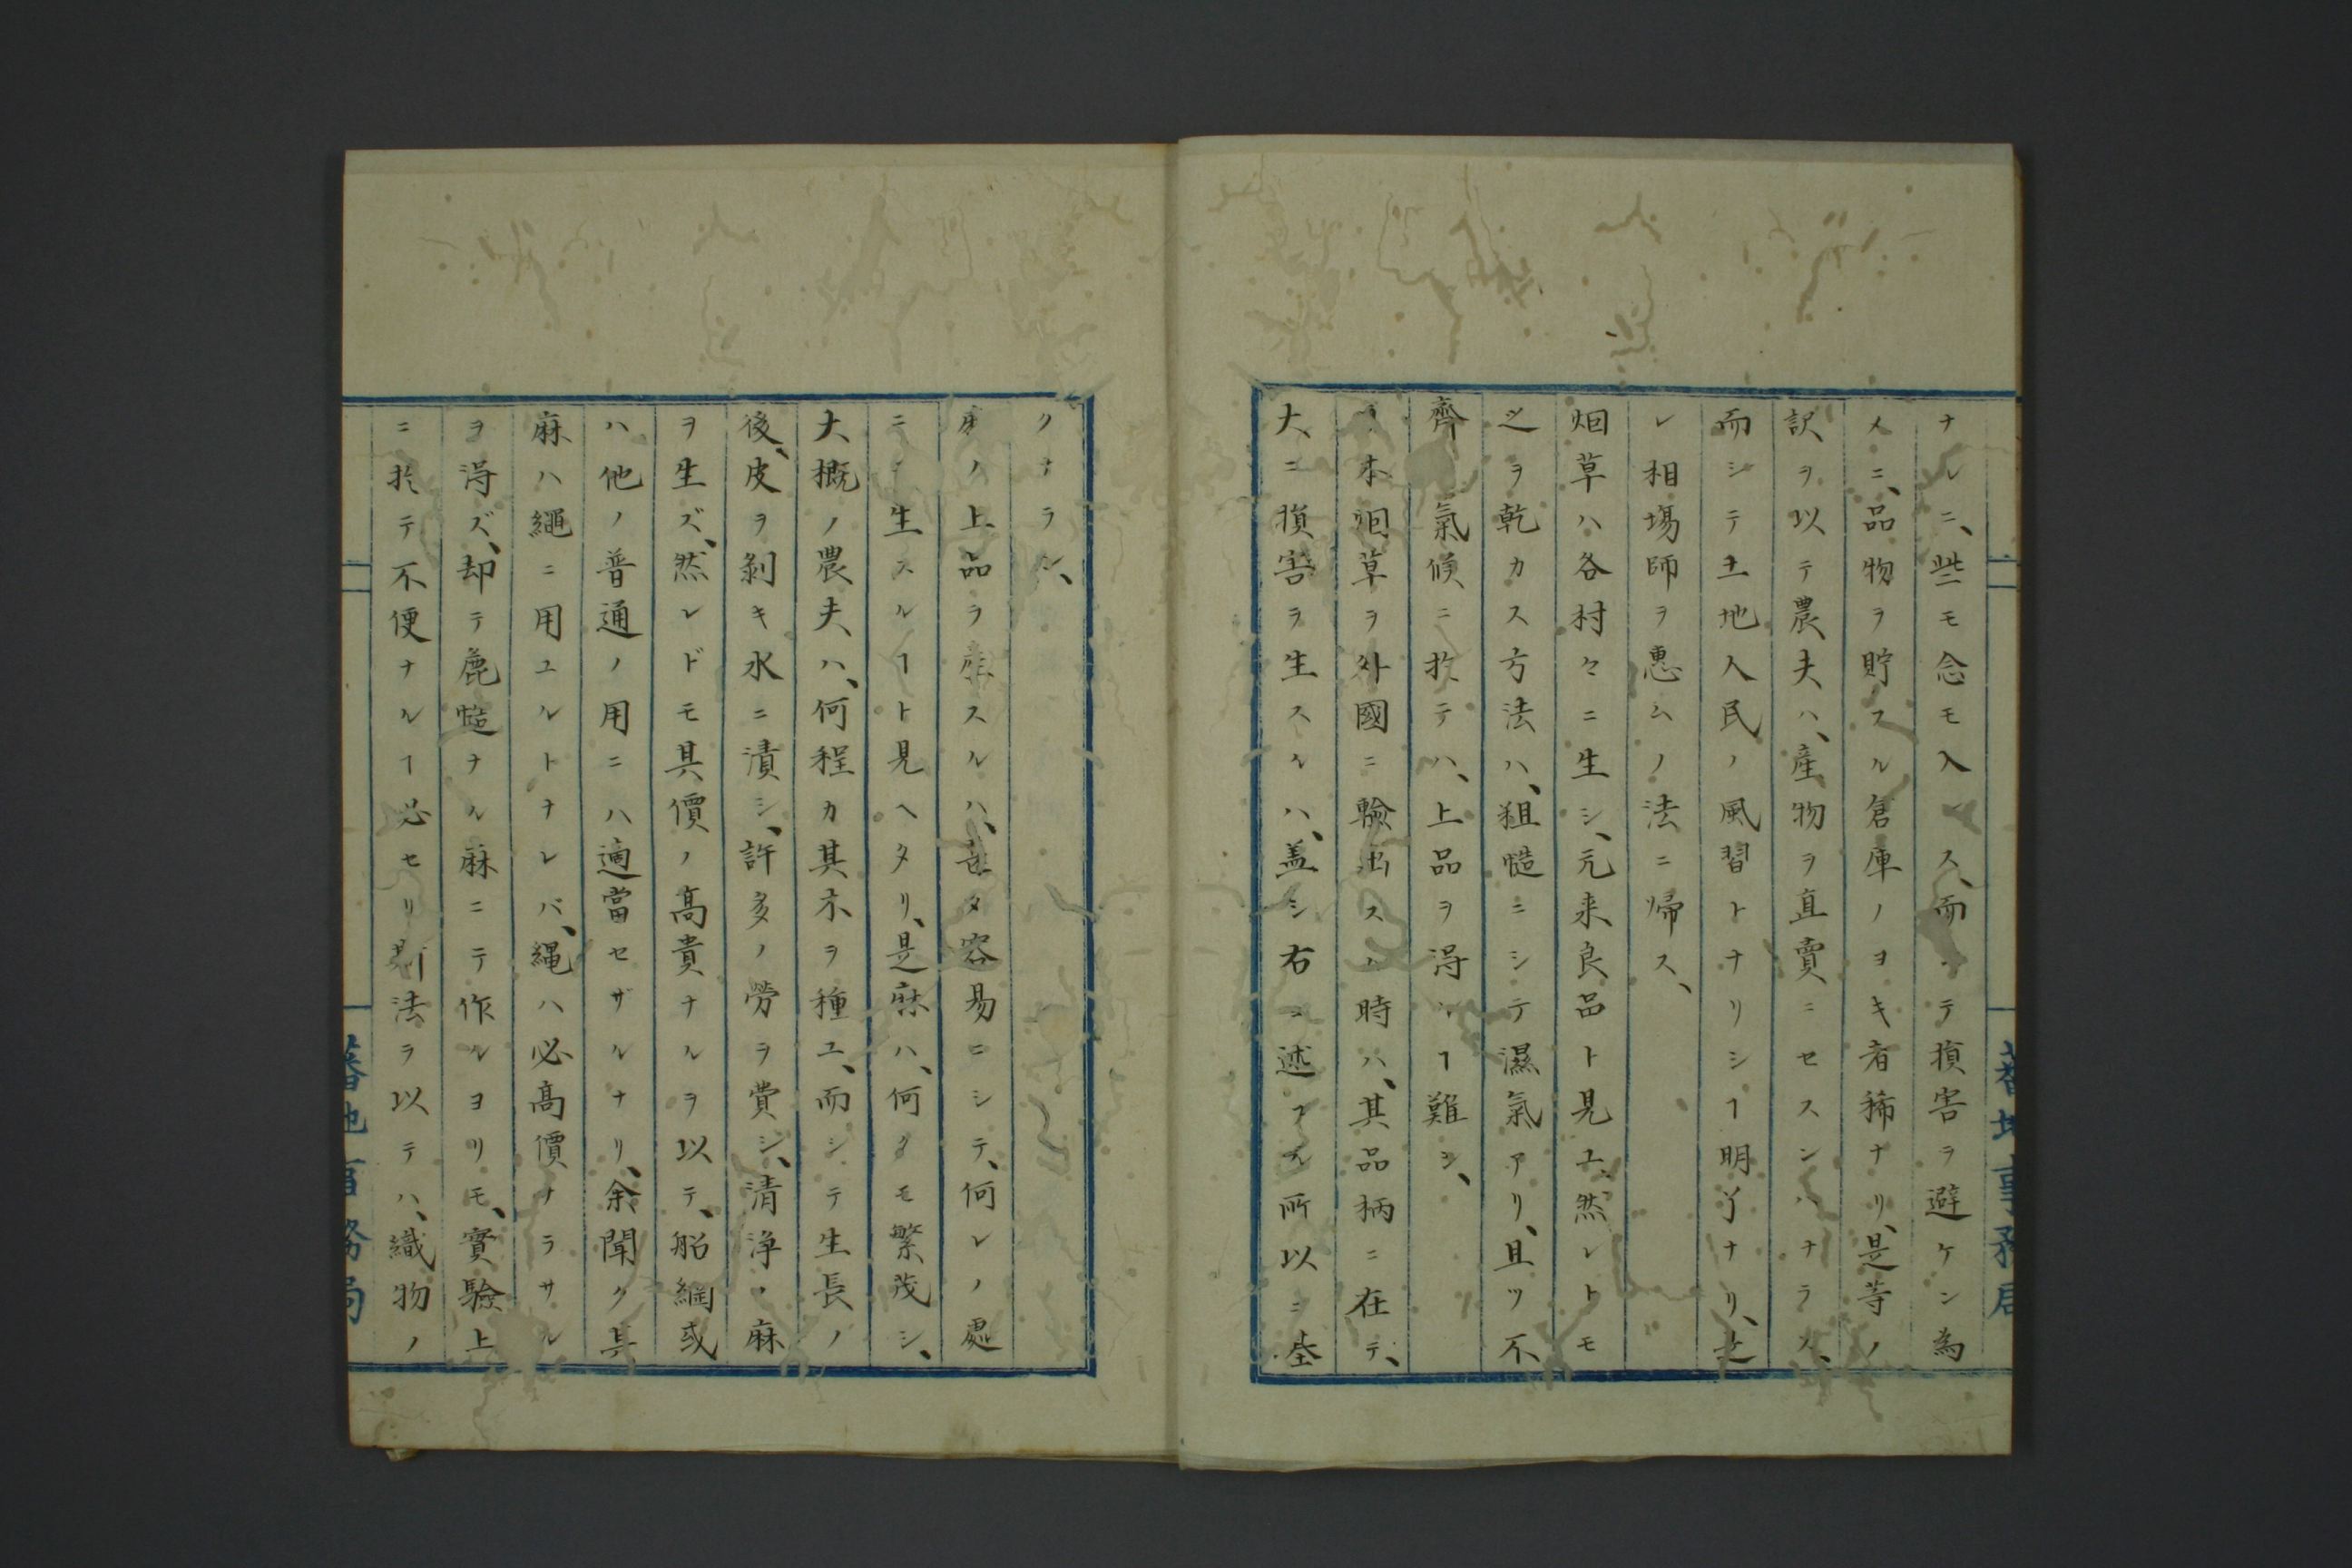 ナルニ、些モ念モ入レス、而シテ損害ヲ避ケン為
メニ、品物ヲ貯フル倉庫ノヨキ者稀ナリ、是等ノ
訳ヲ以テ農夫ハ、産物ヲ直賣ニセスンハナラス、
而シテ土地人民ノ風習トナリシヿ明了ナリ、是
レ相場師ヲ惠ムノ法ニ帰ス、
烟草ハ各村々ニ生シ、元来良品ト見ユ、然レトモ
之ヲ乾カス方法ハ、粗糙ニシテ濕氣アリ、且ツ不
齊 氣候ニ於テハ、上品ヲ得ルヿ難シ、
本烟草ヲ外國ニ輸出スル時ハ、其品柄ニ在テ、
大ニ損害ヲ生スルハ、盖シ右ニ述フル所以ニ基
クナラン、
麻ノ上品ヲ産スルハ、甚タ容易ニシテ、何レノ處
ニテ生スルヿト見ヘタリ、是麻ハ、何クモ繁茂シ、
大概ノ農夫ハ、何程カ其木ヲ種ユ、而シテ生長ノ
後、皮ヲ剥キ水ニ漬シ、許多ノ勞ヲ費シ、清浄ノ麻
ヲ生ズ、然レドモ其價ノ高貴ナルヲ以テ、船綱或
ハ他ノ普通ノ用ニハ適當セザルナリ、余聞ク其
麻ハ繩ニ用ユルトナレバ、縄ハ必高價ナラサル
ヲ得ズ、却テ麁糙ナル麻ニテ作ルヨリモ、實驗上
ニ於テ不便ナルヿ必セリ 新法ヲ以テハ、織物ノ
蕃地事務局
蕃地事務局